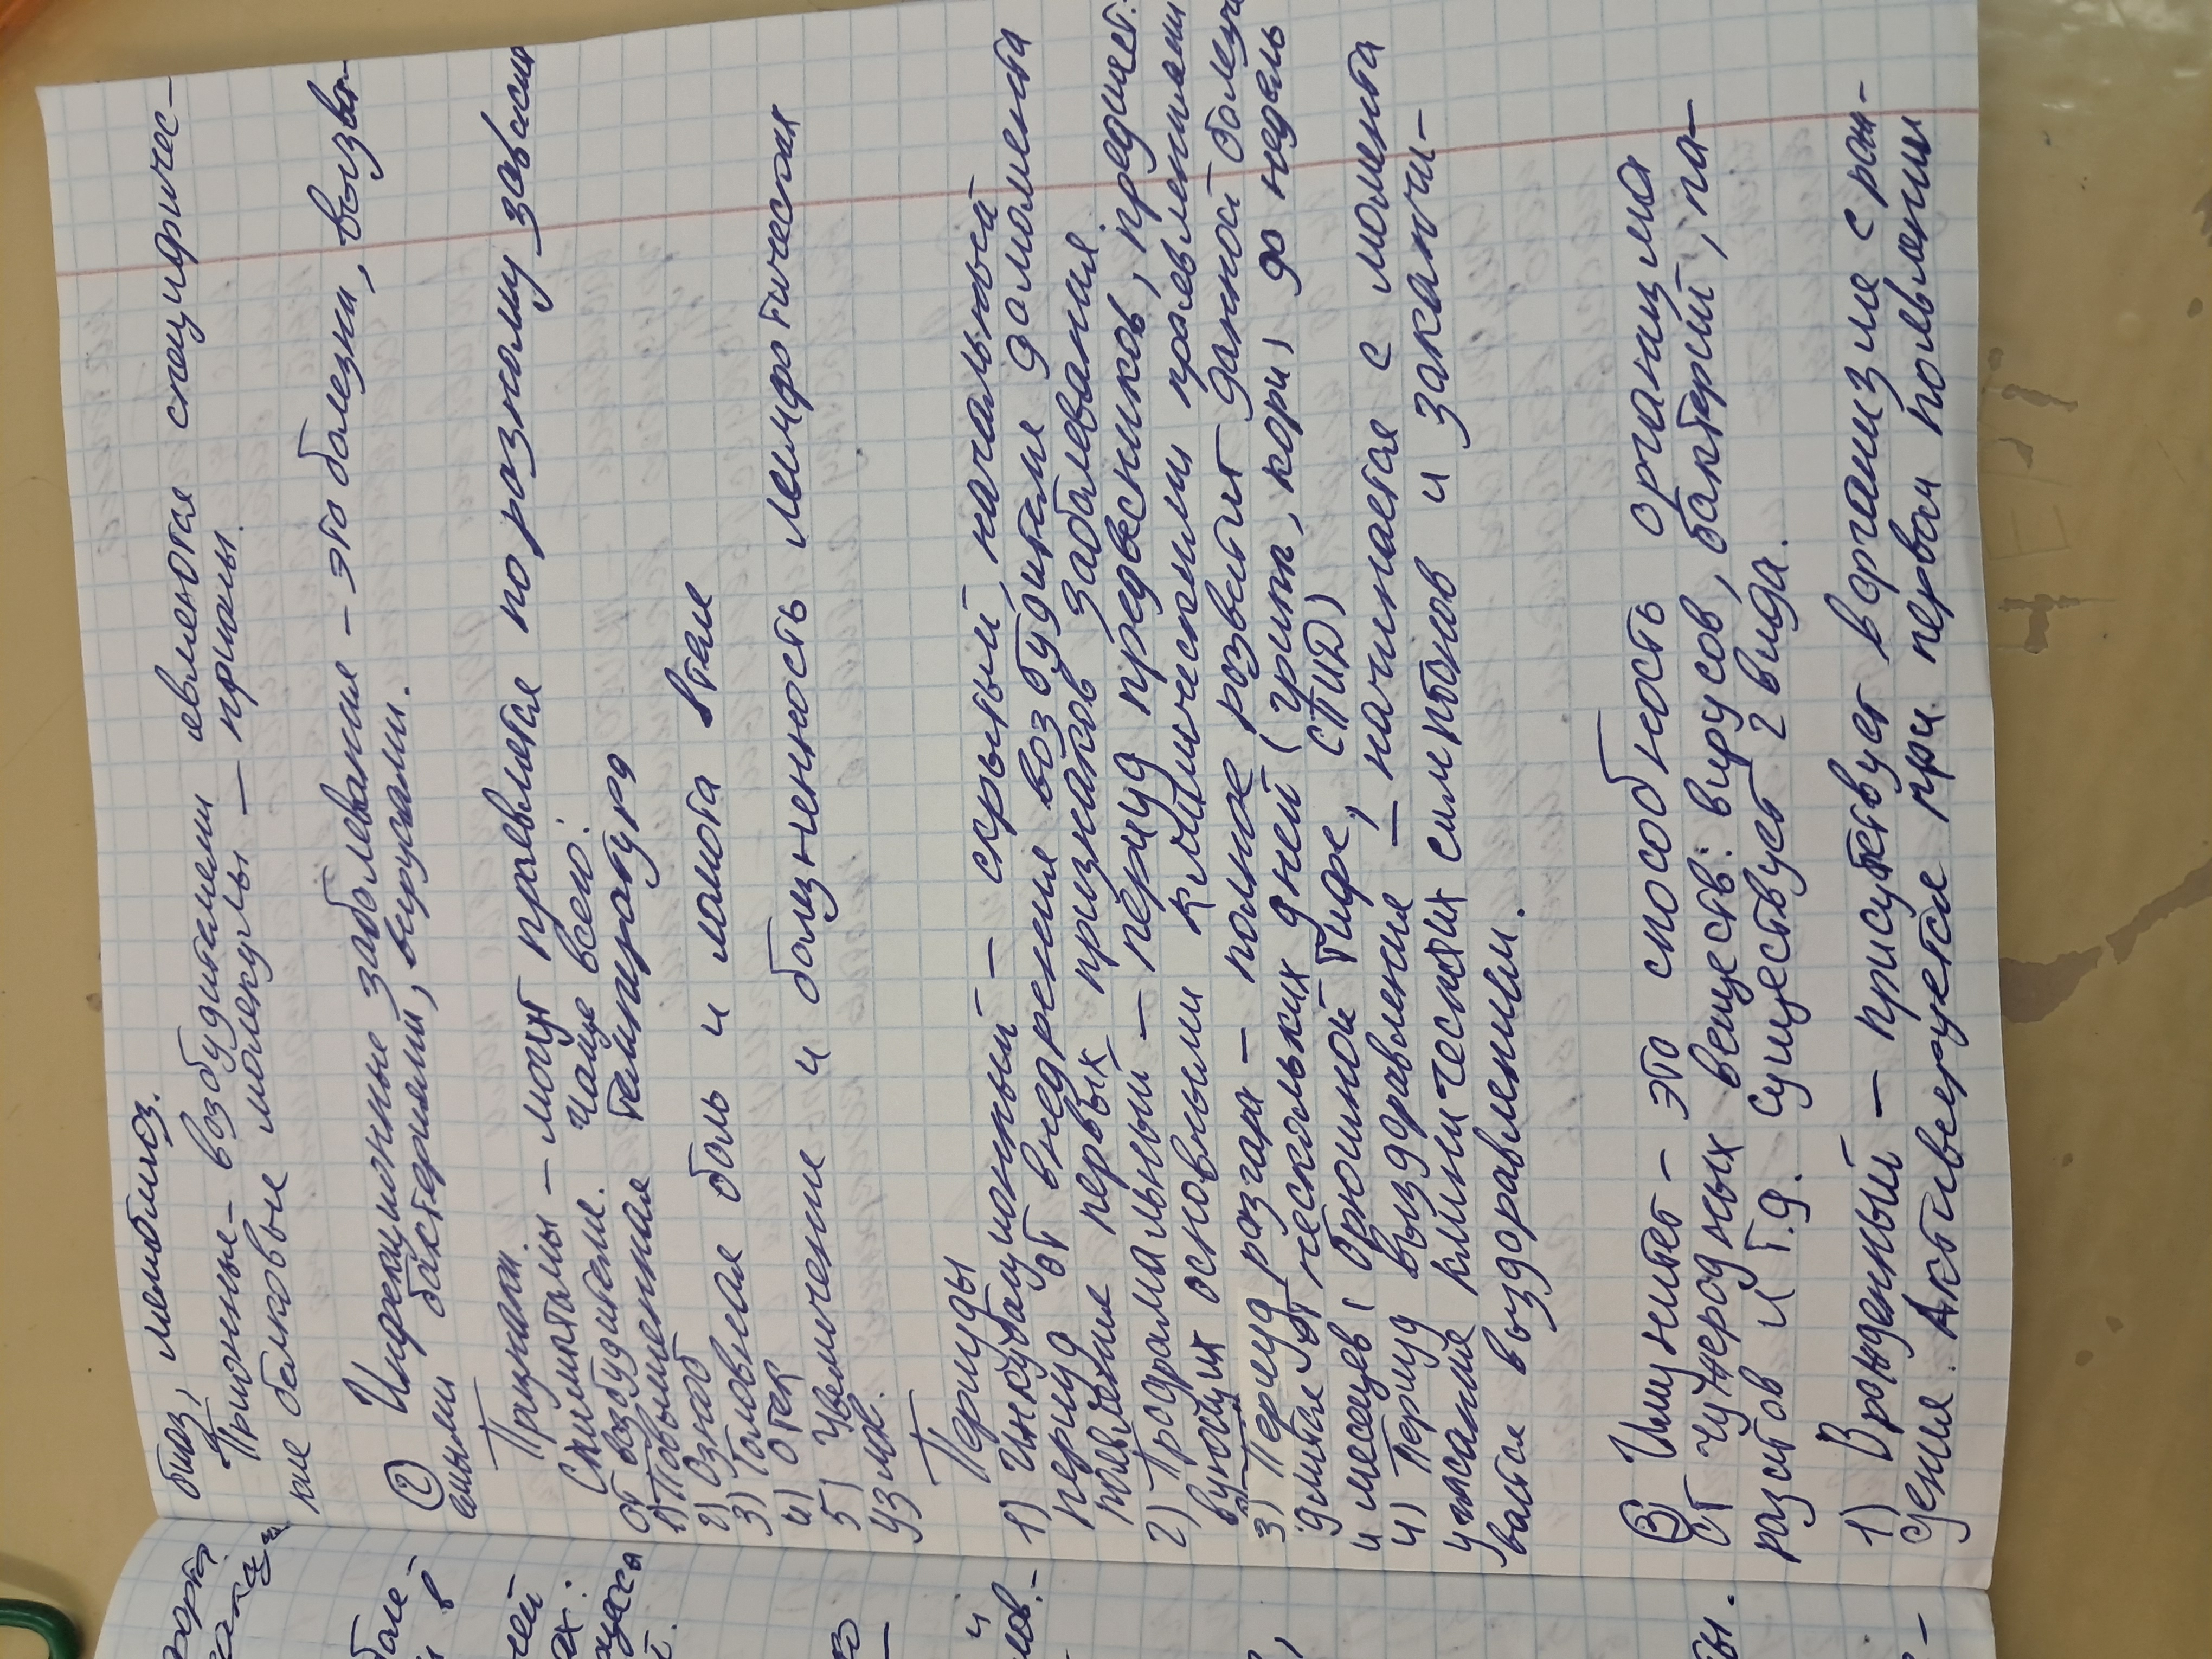 биаз, лямблиоз.
Прионные - возбудителями являются специфичес-
кие белковые молекулы - прионы.
② Инфекционные заболевания - это болезни, вызва-
нными бактериями, вирусами.
Признаки.
Симптомы - могут проявлятся по разному зависит
от возбудителя. Чаще всего:
1) Повышенная температура
2) Озноб
3) Головная боль и ломота в теле
4) Отёк
5) Увеличение и болезненность лимфотическая
узлов.
Периуды
1) Инкубационный - скрытый, начальный
периуд от внедрения возбудителя до момента
появления первых признаков заболевания.
2) Продромальный - периуд предвесников, предшест-
вующих основными клиническими проявлениями
3) Периуд разгара - полное развитие данной болезни
длится от нескольких дней (грипп, корь) до недель
и месяцев (брюшной тифе, СПИД)
4) Периуд выздравления - начинается с момента
угасания клинических симптомов и заканчи-
вается выздоравлением.
③ Иммунитет - это способность организма
от чужеродных веществ: вирусов, бактерий, па-
разитов и т.д. Существует 2 вида.
1) Врожденный - присутствует в организме с рож-
дения. Активируется при первом появлении